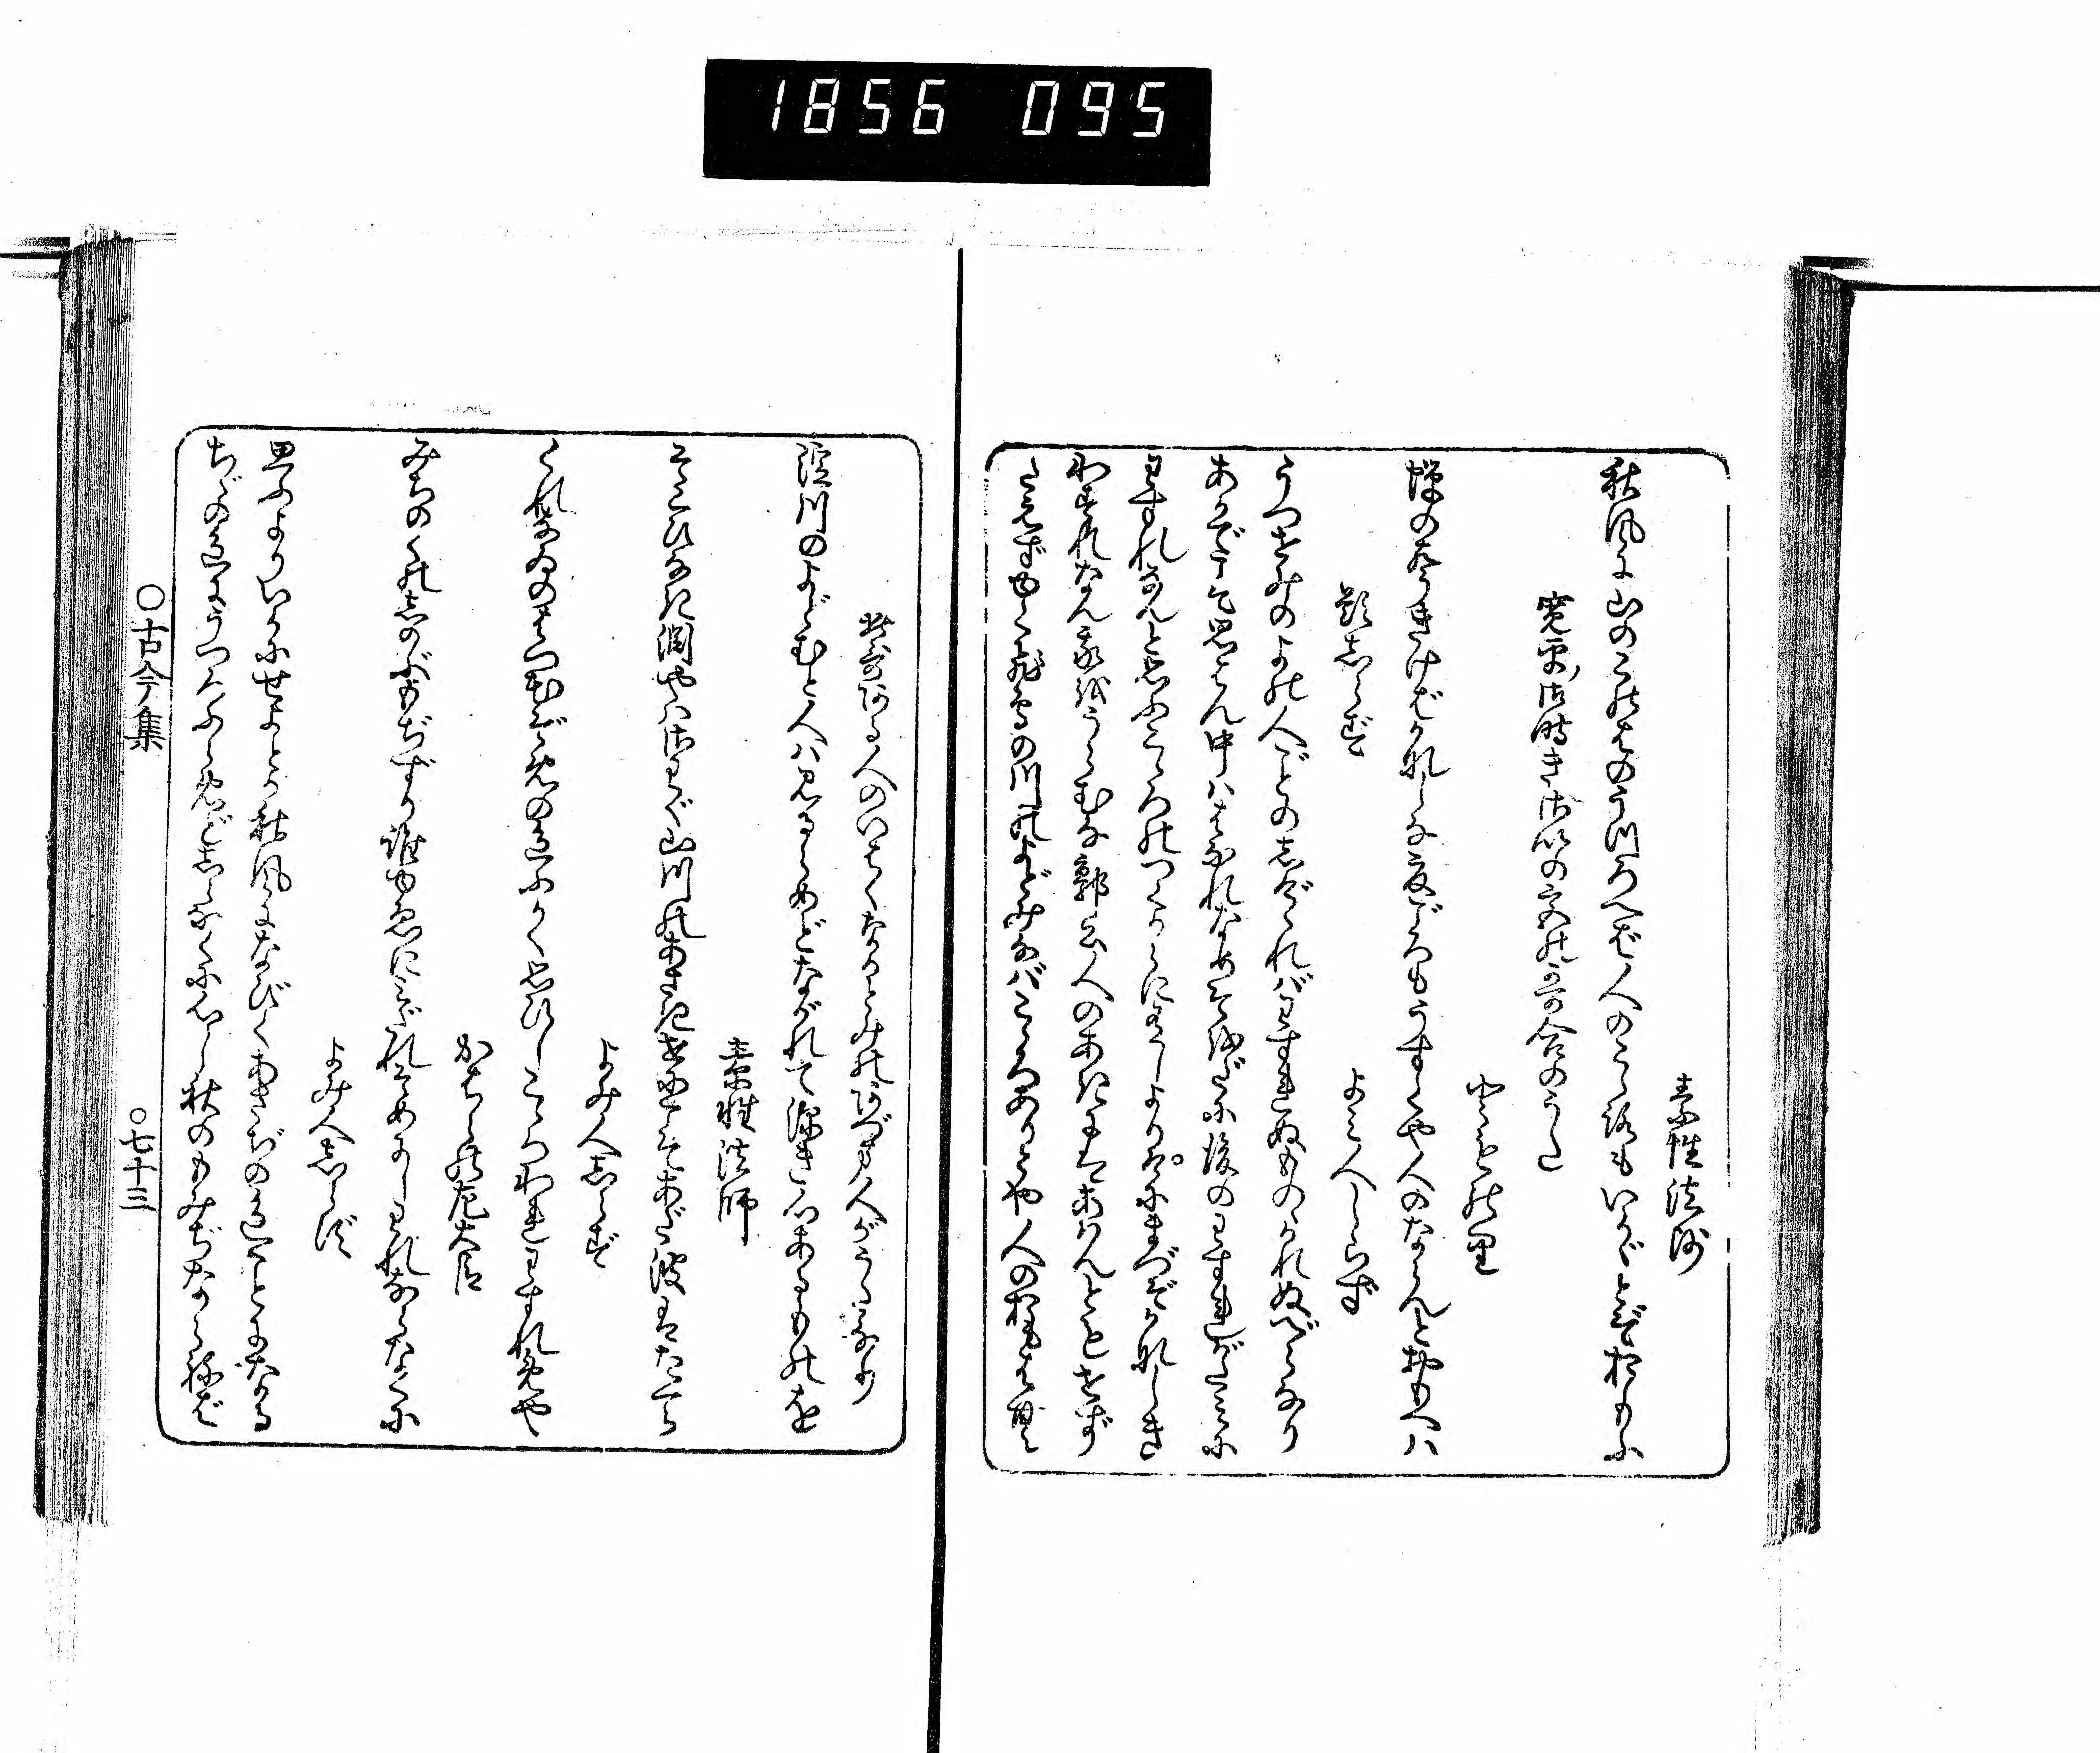 1856 095
素性法師
秋風に山のこのはのうつろへば人のこゝろもいかゞとぞおもふ
寛平御時きさいの宮の哥合のうた
とものり
蝉のこゑきけばかなしな夏ごろもうすくや人のならんとおもへハ
題しらず
よみ人しらず
うつせみのよの人ごとのしげゝれバわすれぬものゝかれぬべらなり
あかでこそ思はん中ハはなれなめそをだに後のわすれがたみに
わすれなんと思ふこゝろのつくからに有しよりけにまづぞかなしき
わすれなん我をうらむな郭公人のあきにはあはんともせず
たえずゆく飛鳥の川のよどみなバこゝろありとや人のおもはむ
此哥ある人のいはくなかとみのあづま人がうた也
淀川のよどむと人ハ見るらめどながれて深き心あるものを
素性法師
そこひなき淵やハさわぐ山川のあさきせにこそあだ波はたて
よみ人しらず
くれなゐのはつ花ぞめの色ふかく思ひしこゝろわれわすれめや
かはらの左大臣
みちのくのしのぶもぢずり誰ゆゑにみだれそめにしわれならなくに
よみ人しらず
思ふよりいかにせよとか秋風になびくあさぢの色ことになる
ちゞの色にうつろふらめどしらなくに心し秋のもみぢならねば
○古今集
○七十三